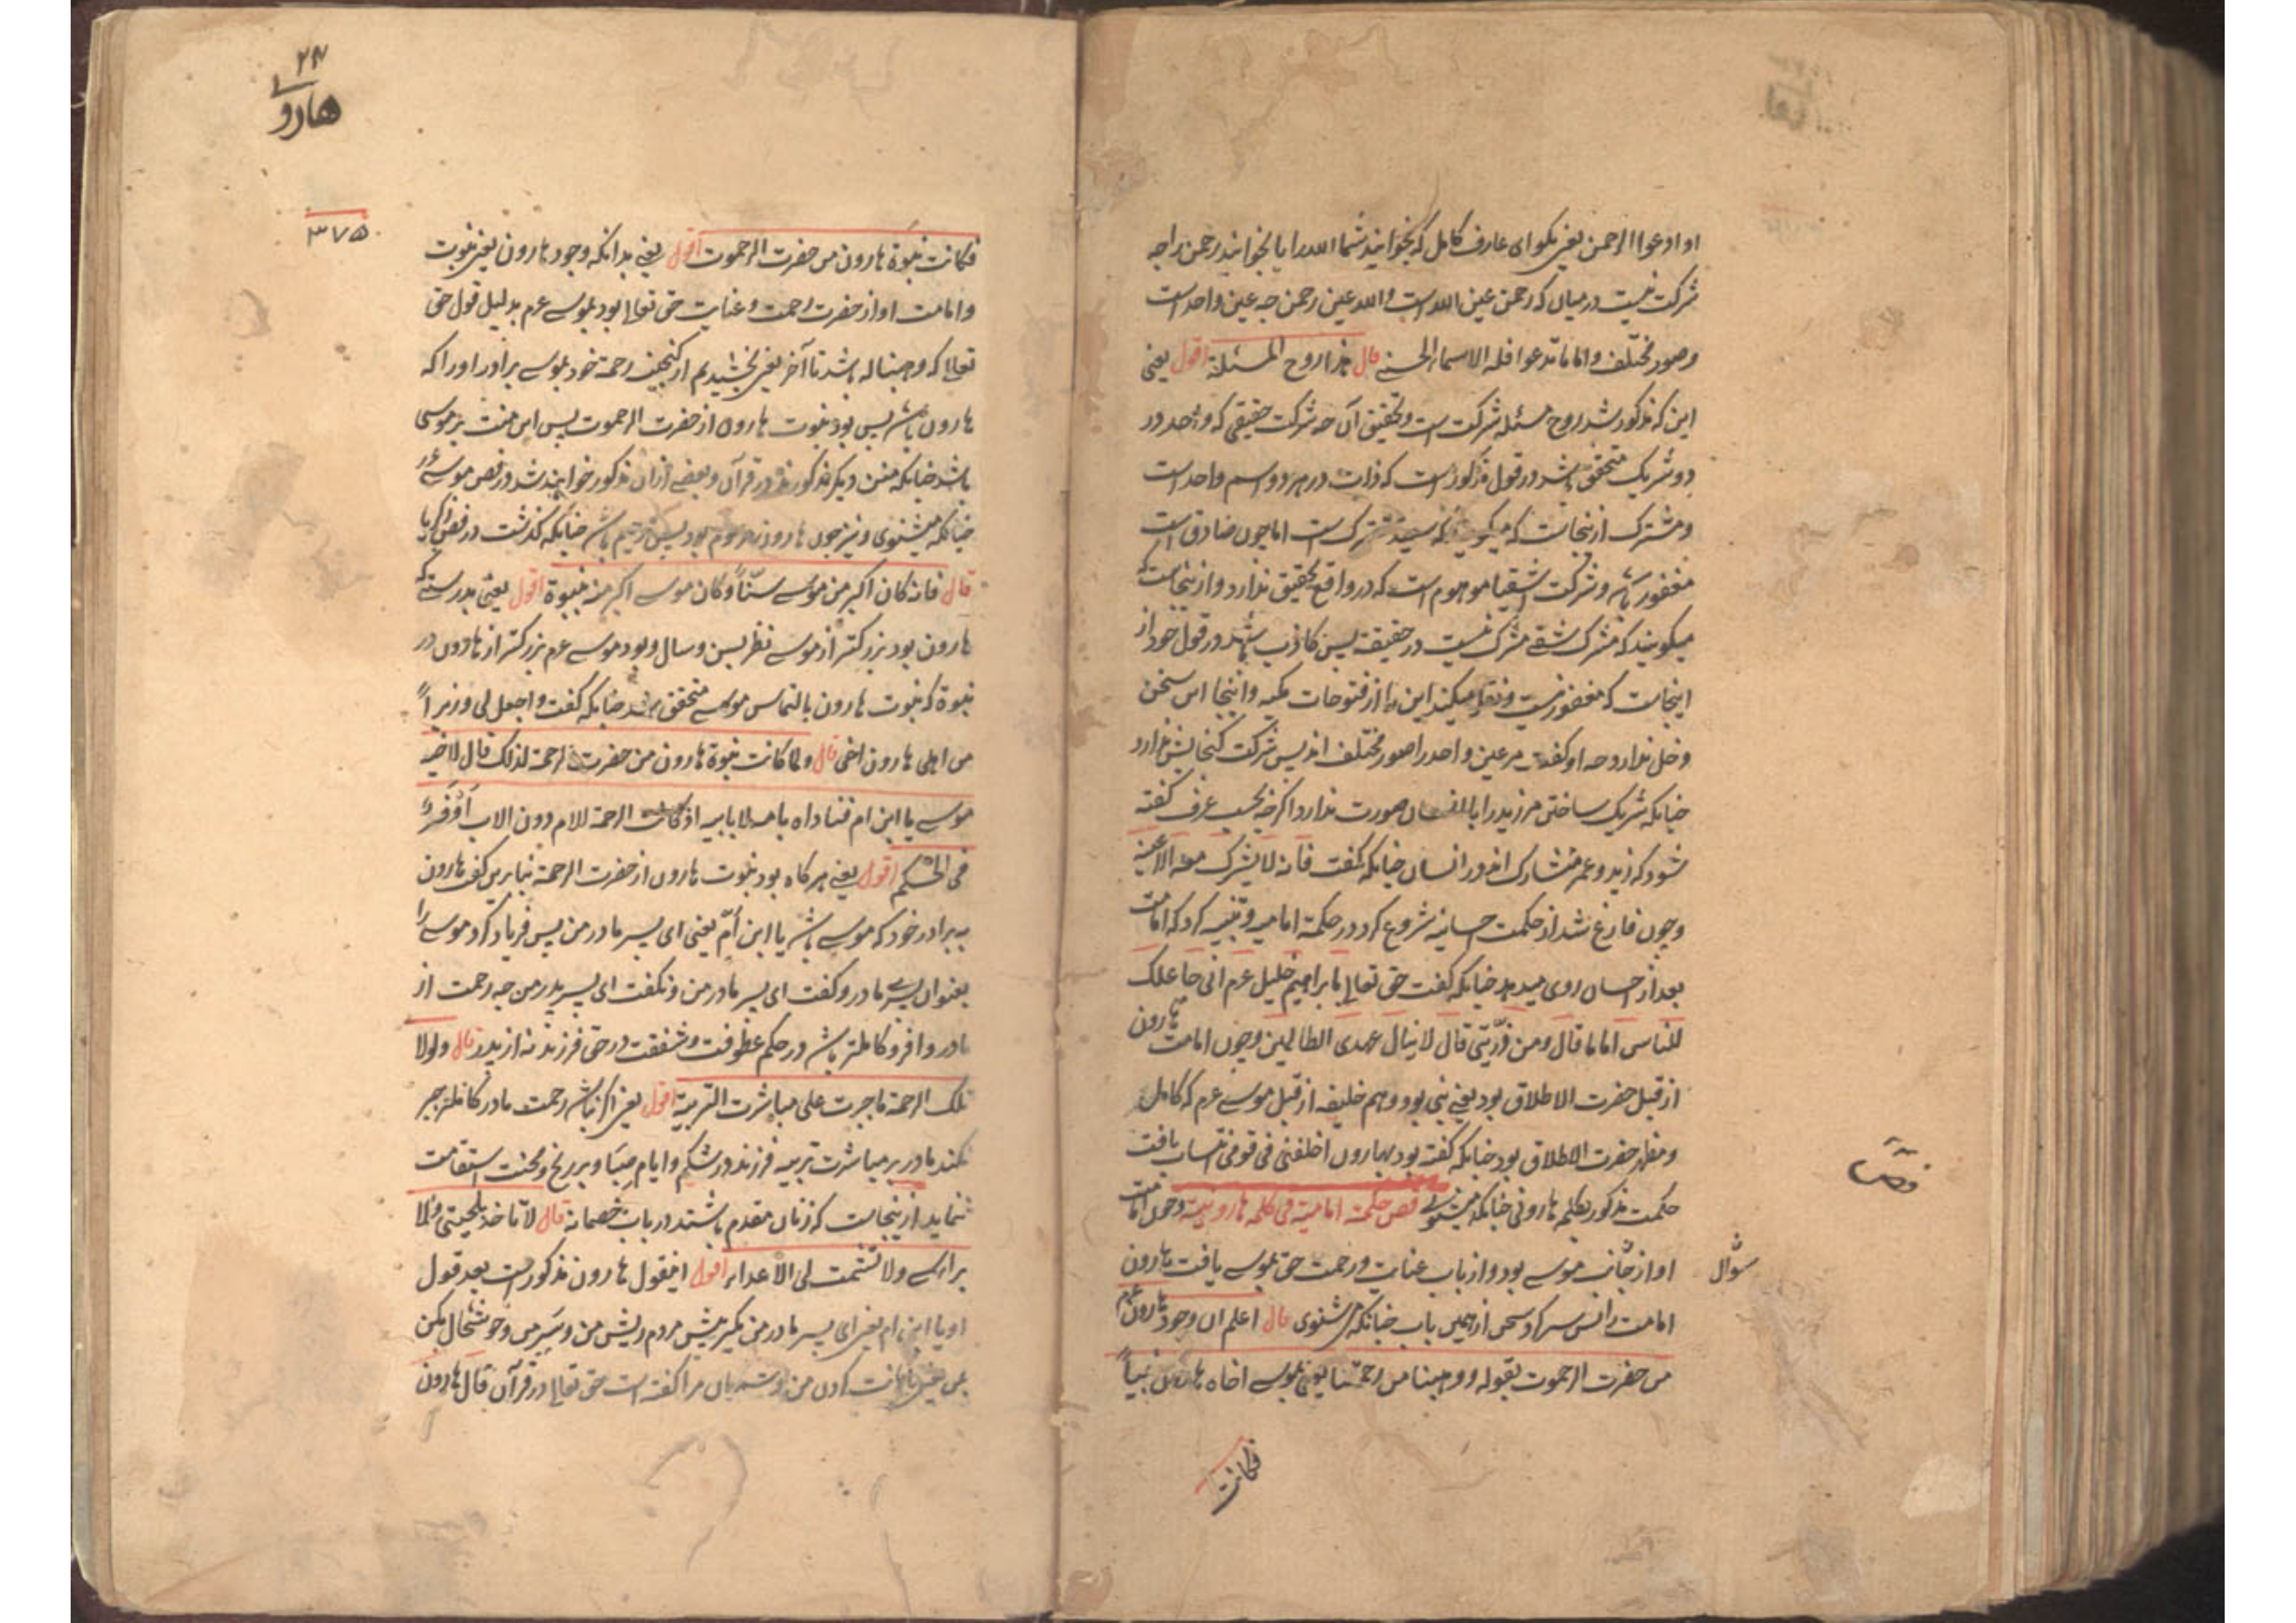 او ادعوا الرحمن یعنی بکو ای عارف کامل که بخوانید شما الله را یا بخوانید رحمن را چه
شرکت نیست درمیان که رحمن عین الله است والله عین رحمن چه عین واحد است
وصور مختلف و اما ما تدعوا فله الاسماء الحسنی قال هذا روح المسئلة اقول یعنی
این که مذکور شد روح مسئله شرکت است و تحقیق آن چه شرکت حقیقی که واحد در
دو شریک متحقق باشد در قول مذکور است که ذات در هر دو اسم واحد است
و مشترک ازینجاست که میکویند که سعید مشترک است اما چون صادق است
مغفور باشد و شرکت اشقیا موهوم است که در واقع تحقیق ندارد و ازینجاست که
میکویند که مشرک شقی مشرک نیست در حقیقة پس کاذب باشد در قول خود از
اینجاست که مغفور نیست و نقل میکند این را از فتوحات مکیه و اینجا این سخن
دخل ندارد چه او کفته مر عین واحد را صور مختلف اند پس شرکت کنجایش ندارد
چنانکه شریک ساختن مر زید را با انسان صورت ندارد اکرچه بحسب عرف کفته
شود که زید و عمر متشارک اند در انسان چنانکه کفت فانه لا یشرک معه الا عینه
وچون فارغ شد از حکمت احسانیه شروع کرد در حکمة امامیه و تنبیه کرد که امامت
بعد از احسان روی میدهد چنانکه کفت حق تعالی با براهیم خلیل عم انی جاعلک
للناس اماما قال ومن ذریتی قال لا ینال عهدی الظالمین وچون امامت هارون
از قبل حضرت الاطلاق بود یعنی نبی بود و هم خلیفه از قبل موسی عم که کامل
ومظهر حضرت الاطلاق بود چنانکه کفته بود بهارون اخلفنی فی قومی انتساب یافت
حکمت مذکور بکلمه هارونی چنانکه میشنوی فص حکمة امامیة فی کلمة هارونیة وچون امامت
او از جانب موسی بود و از باب عنایت و رحمت حق بموسی یافت هارون
سؤال
امامت را پس سر کرد سخن از همین باب چنانکه میشنوی قال اعلم ان وجود هارون عم
من حضرت الرحموت بقوله ووهبنا من رحمتنا یعنی بموسی اخاه هارون نبیاً
فکانت
فص
۲۴
هارو
۳۷۵
فکانت نبوة هارون من حضرت الرحموت اقول یعنی بدانکه وجود هارون یعنی نبوت
و امامت او از حضرت رحمت و عنایت حق تعالی بود بموسی عم بدلیل قول حق
تعالی که وهبنا له باشد تا آخر یعنی بخشیدیم از کنجینه رحمة خود بموسی برادر او را که
هارون باشد پس بود نبوت هارون از حضرت الرحموت پس این منت بر موسی
باشد چنانکه منن دیکر مذکورند در قرآن و بعضی از ان مذکور خواهند شد در فص موسی عم
چنانکه میشنوی و نیز چون هارون مرحوم بود پس رحیم باشد چنانکه کذشت در فص زکریا
قال فانه کان اکبر من موسی سنّاً وکان موسی اکبر منه نبوة اقول یعنی بدرستیکه
هارون بود بزرکتر از موسی نظر بسن و سال و بود موسی عم بزرکتر از هارون در
نبوة که نبوت هارون بالتماس موسی متحقق شد چنانکه کفت واجعل لی وزیراً
من اهلی هارون اخی قال ولما کانت نبوة هارون من حضرت الرحمة لذلک قال لاخیه
موسی یا ابن ام فناداه بامه لا بابیه اذ کانت الرحمة للام دون الاب اوفر
فی الحکم اقول یعنی هر کاه بود نبوت هارون از حضرت الرحمة بنابرین کفت هارون
ببرادر خود که موسی باشد یا ابن اُمّ یعنی ای پسر مادر من پس فریاد کرد موسی را
بعنوان پسر مادر و کفت ای پسر مادر من و نکفت ای پسر پدر من چه رحمت از
مادر وافر و کاملتر باشد در حکم عطوفت و شفقت در حق فرزند نه از پدر قال ولولا
تلک الرحمة ما جرت علی مباشرت التربیة اقول یعنی اکر نباشد رحمت مادر کاملتر جبر
نکند مادر بر مباشرت تربیه فرزند در شکم و ایام صِبَا و بر رنج و محنت استقامت
ننماید ازینجاست که زنان مقدم باشند در باب خصمانه قال لا تاخذ بلحیتی ولا
براسی ولا تشمت بی الاعداء اقول اینقول هارون مذکور است بعد قول
او یا ابن ام یعنی ای پسر مادر من مکیر پیش مردم ریش من و سَر من و خوشحال مکن
قال هارون